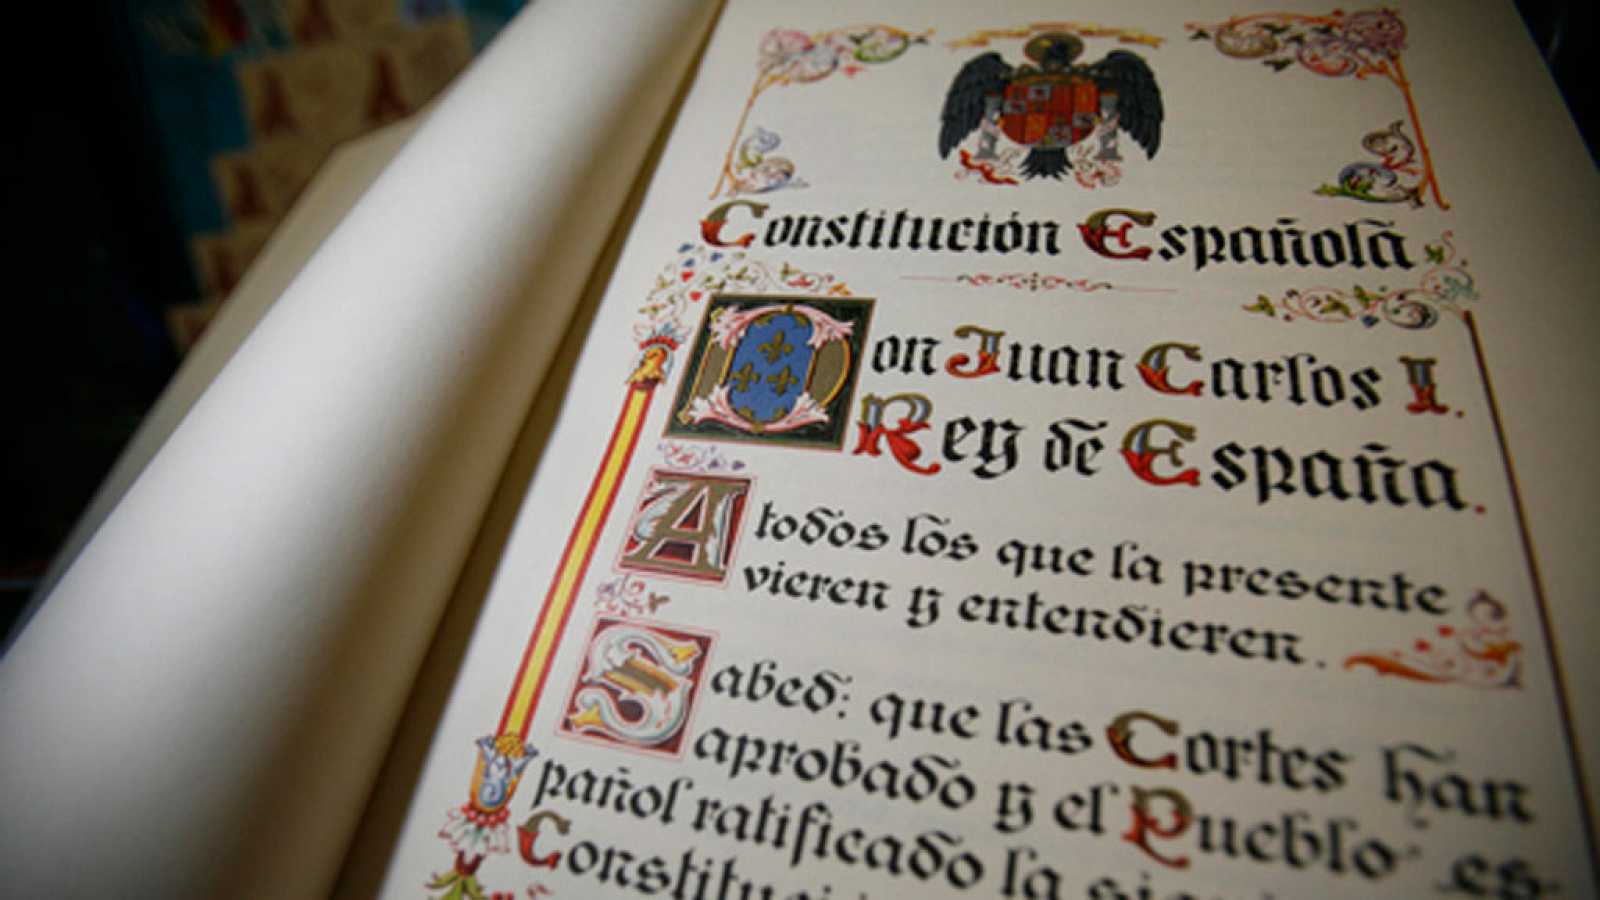 Constitución Española
Don Juan Carlos I.
Rey de España.
A todos los que la presente
vieren y entendieren.
Sabed: que las Cortes han
aprobado y el Pueblo es-
pañol ratificado la